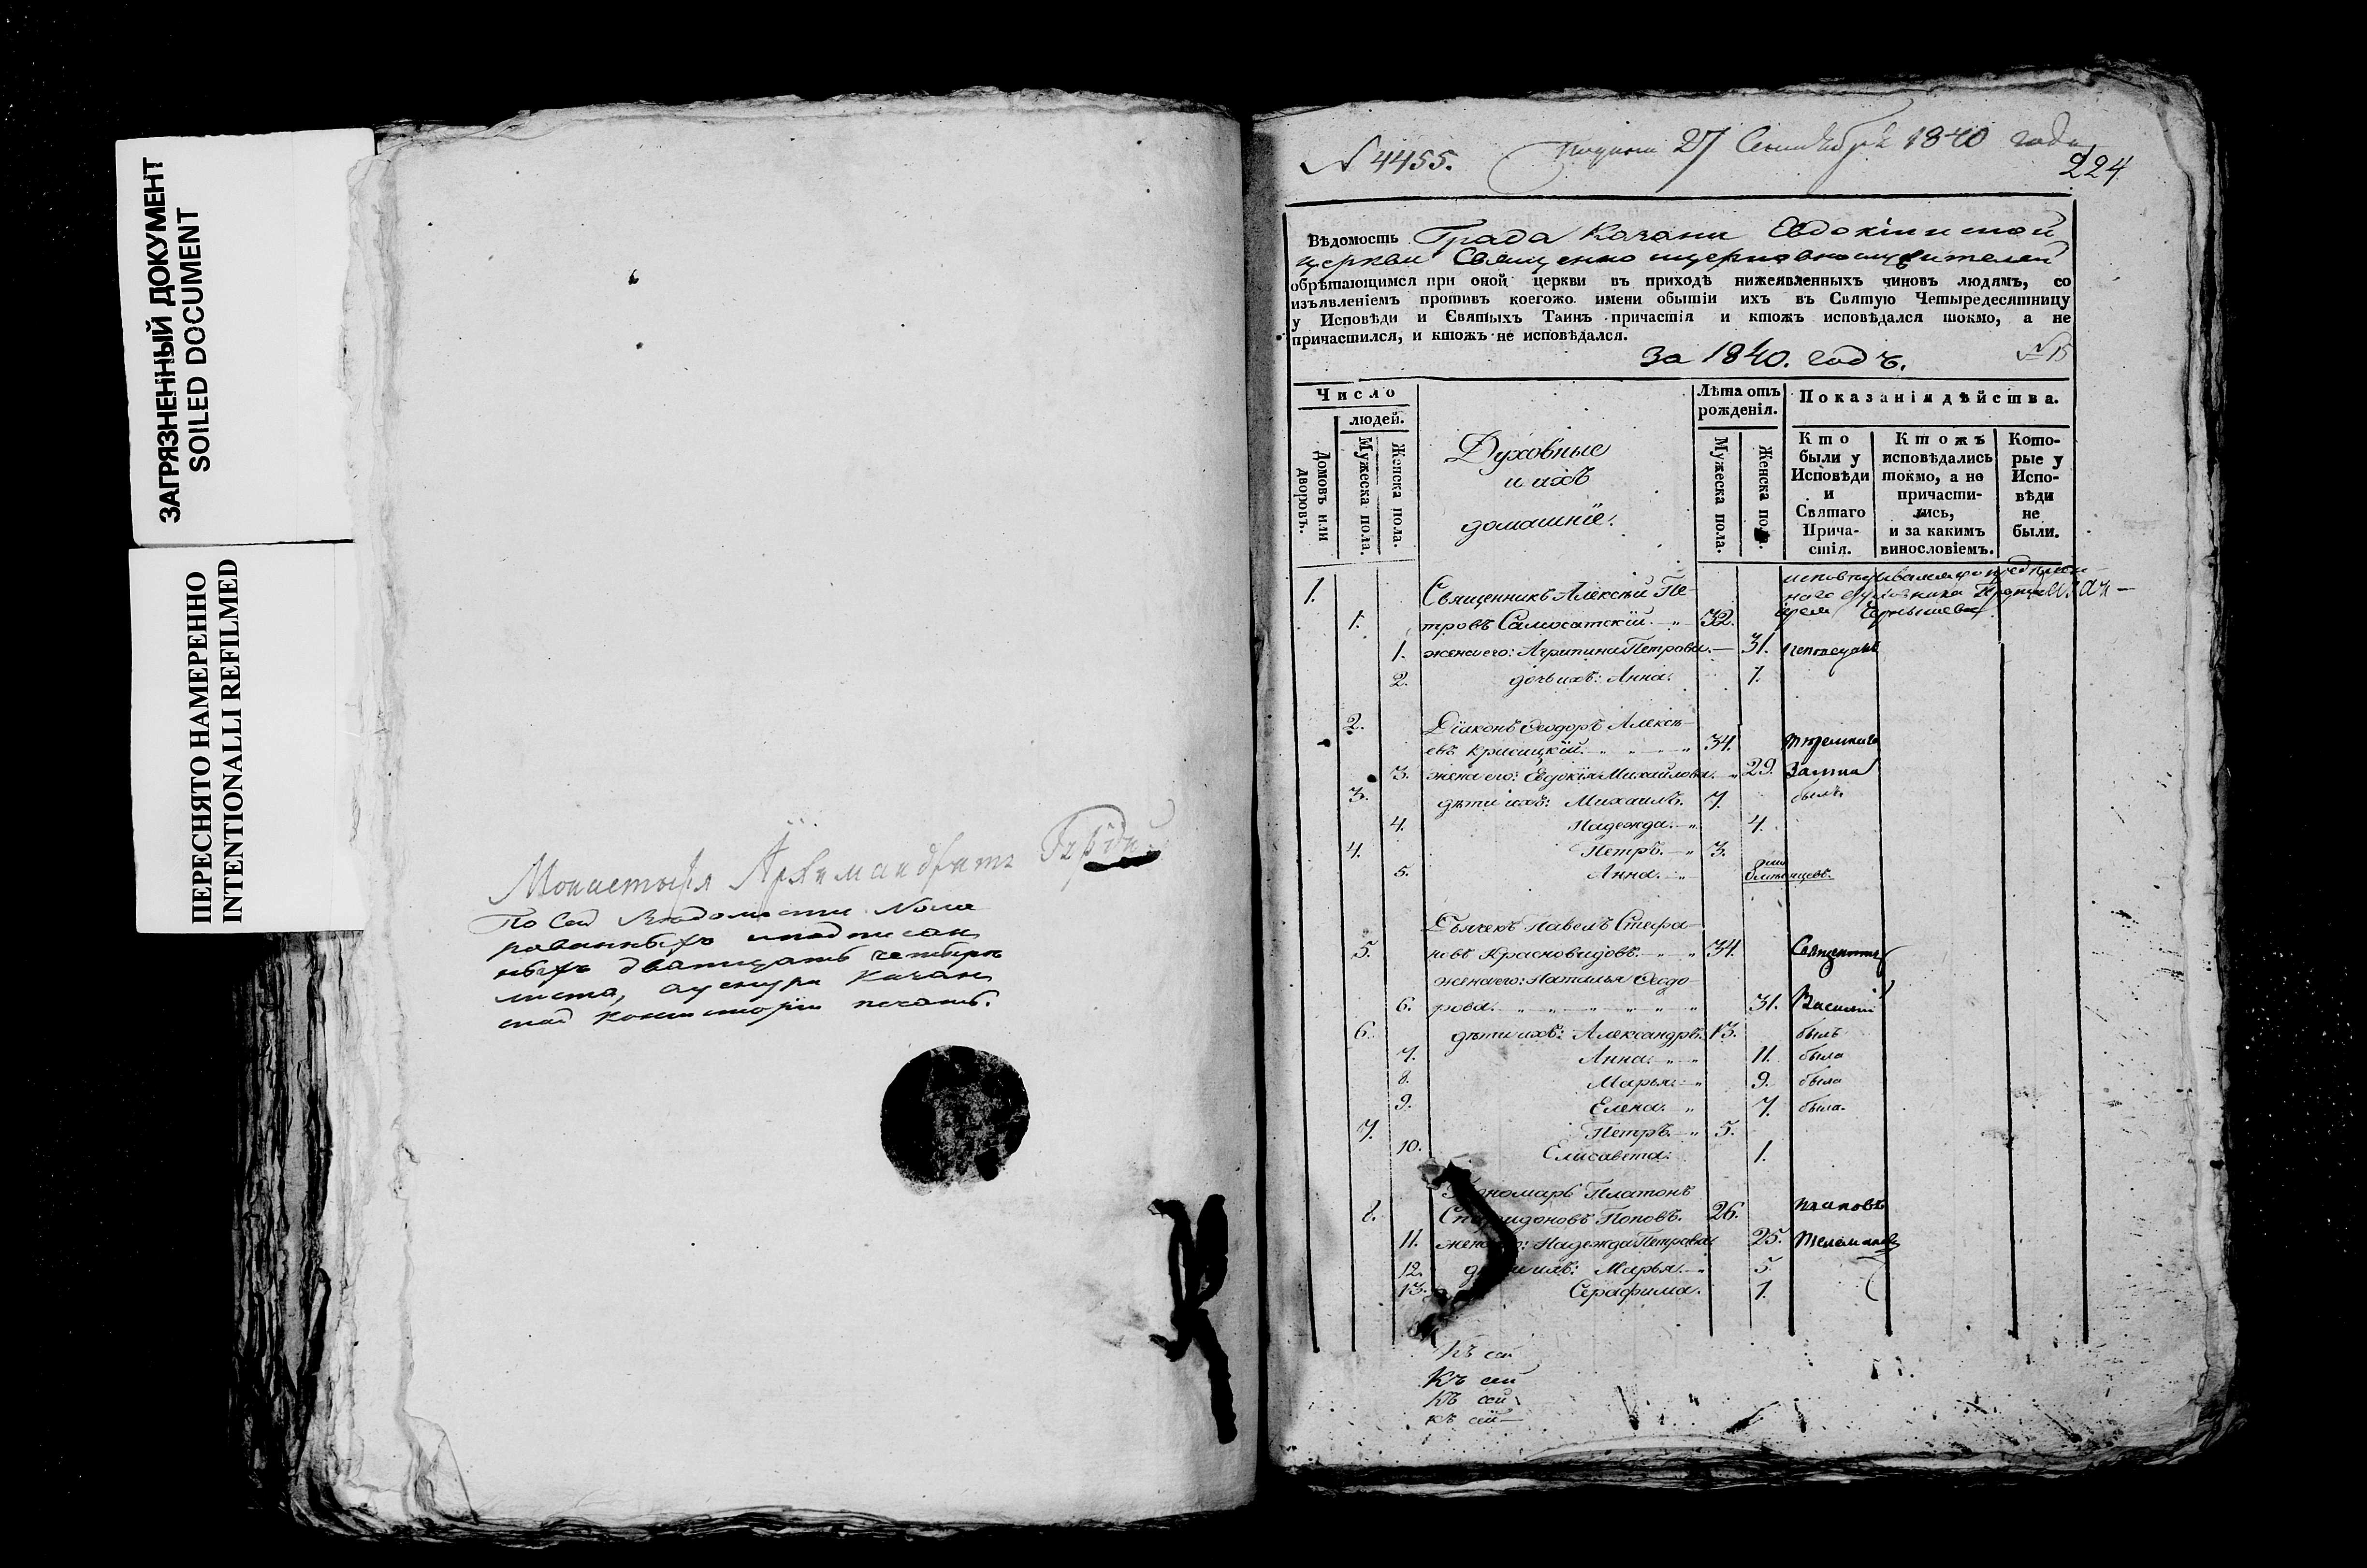 ЗАГРЯЗНЕННЫЙ ДОКУМЕНТ
SOILED DOCUMENT
ПЕРЕСНЯТО НАМЕРЕННО
INTENTIONALLI REFILMED
Монастыря Архимандритъ
По сей Ведомости Номе
рованныхъ и подписан
ныхъ двадцать четыре
листа, Казан
ской Консисторіи печать.
N 4455. 27 Сентября 1840 года
224
Вѣдомость Града Казани Евдокіинской
церкви Священно церковнослужителей
обрѣтающимся при оной церкви въ приходѣ нижеявленныхъ чиновъ людямъ, со
изъявленіемъ противъ коегожо имени обытіи ихъ въ Святую Четыредесятницу
у Исповѣди и Святыхъ Таинъ причастія и ктожъ исповѣдался токмо, а не
причастился, и ктожъ не исповѣдался.
За 1840. годъ. № 15
Число
людей.
Домовъ или дворовъ.
Мужеска пола.
Женска пола.
Духовные
и ихъ
домашніе.
Лѣта отъ
рожденія.
Мужеска пола.
Женска пола.
Показанія дѣйства.
Кто
были у
Исповѣди
и
Святаго
Прича-
стія.
Ктожъ
исповѣдались
токмо, а не
причасти-
лись,
и за какимъ
винословіемъ.
Кото-
рые у
Испо-
вѣди
не
были.
1. Священникъ Алексѣй Пе-
1. тровъ Самосатскій. 32.
1. жена его: Агрипина Петрова. 31.
2. дочь ихъ: Анна. 1.
2. Діаконъ Ѳеодоръ Алексѣ-
евъ Красицкій. 34.
3. жена его: Евдокія Михайлова. 29.
3. дѣти ихъ: Михаилъ. 7. былъ.
4. Надежда. 4.
4. Петръ. 3.
5. Анна.
Дьячекъ Павелъ Стефа-
5. новъ Красновидовъ. 34. Священникъ
жена его: Наталья Ѳеодо-
6. рова. 31. Василій
6. дѣти ихъ: Александръ. 13. былъ
7. Анна. 11. была
8. Марья. 9. была
9. Елена. 7. была.
7. Петръ. 5.
10. Елисавета. 1.
Пономарь Платонъ
8. Спиридоновъ Поповъ. 26.
11. жена его: Надежда Петрова 25.
12. дѣти ихъ: Марья. 5
13. Серафима. 1.
Къ сей
Къ сей
Къ сей
къ сей